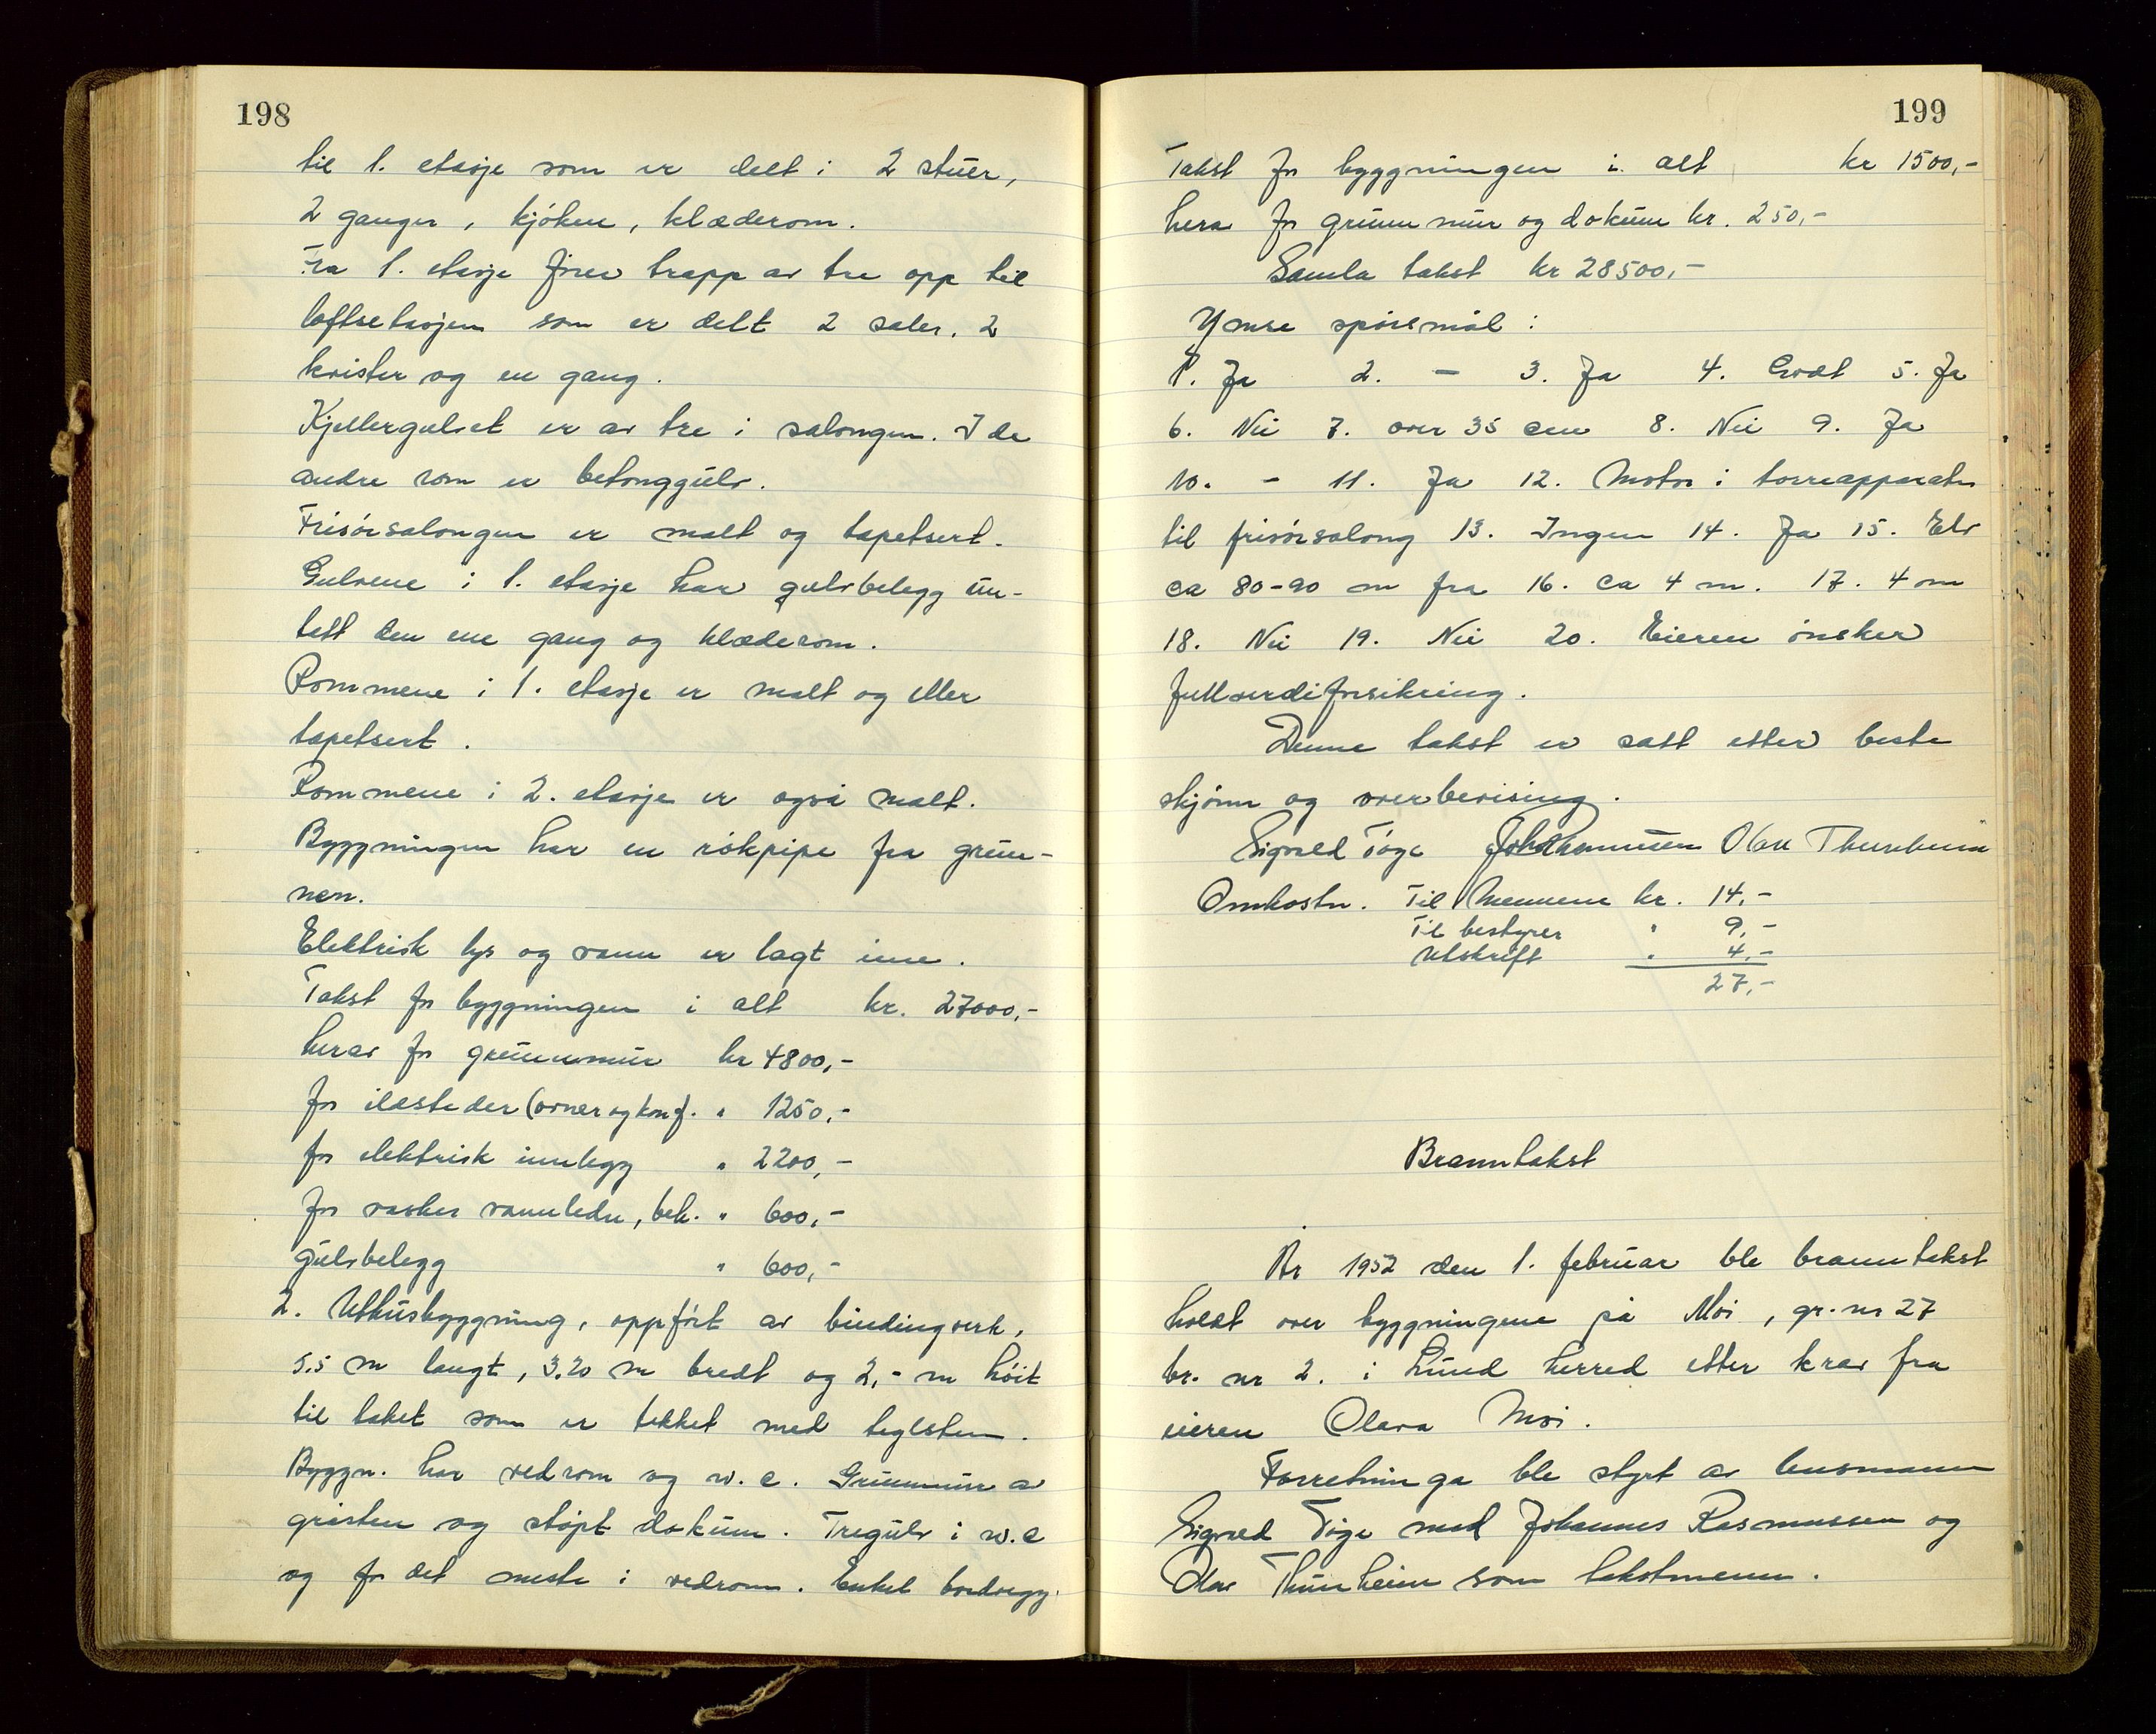 198
til 1. etasje som er delt i 2 stuer,
2 ganger, kjøken, klæderom.
Fra 1. etasje fører trapp av tre opp til
loftsetasjen som er delt 2 saler, 2
kvister og en gang.
Kjellergulvet er av tre i salongen. I de
andre rom er betonggulv.
Frisørsalongen er malt og tapetsert.
Gulvene i 1. etasje har gulvbelegg un-
tatt den ene gang og klæderom.
Rommene i 1. etasje er malt og eller
tapetsert.
Rommene i 2. etasje er også malt.
Byggningen har en rökpipe fra grun-
nen.
Elektrisk lys og vann er lagt inn.
Takst for byggningen i alt kr. 27000,-
herav for grunnmur kr 4800,-
for ildsteder (ovner og komf. " 1250,-
for elektrisk innlegg " 2200,-
for vasker vannledn, bek. " 600,-
gulvbelegg " 600,-
2. Uthusbyggning, oppført av bindingverk,
5,5 m langt, 3,20 m bredt og 2,- m høit
til taket som er tekket med teglsten.
Byggn. har vedrom og w.c. Grunnmur av
gråsten og støpt dokum. Tregulv i w.c
og for det meste i vedrom. Enkel bordvegg.
199
Takst for byggningen i alt kr 1500,-
herav for grunnmur og dokum kr. 250,-
Samla takst kr 28500,-
Ymse spørsmål:
1. Ja 2. - 3. Ja 4. Godt 5. Ja
6. Nei 7. over 35 cm 8. Nei 9. Ja
10. - 11. Ja 12. Motor i tørreapparater
til frisørsalong 13. Ingen 14. Ja 15. Elv
ca 80-90 m fra 16. ca 4 m. 17. 4 m
18. Nei 19. Nei 20. Eieren ønsker
fullverdiforsikring.
Denne takst er satt etter beste
skjønn og overbevising.
Sigvald Tøge Joh Rasmussen Olav Thunheim
Omkostn. Til Mennene kr. 14,-
Til bestyrer " 9,-
Utskrift " 4,-
27,-
Branntakst
År 1952 den 1. februar ble branntakst
holdt over byggningene på Moi, gr. nr 27
br. nr 2. i Lund herred etter krav fra
eieren Olava Moi.
Forretninga ble styrt av lensmann
Sigvald Tøge med Johannes Rasmussen og
Olav Thunheim som takstmenn.